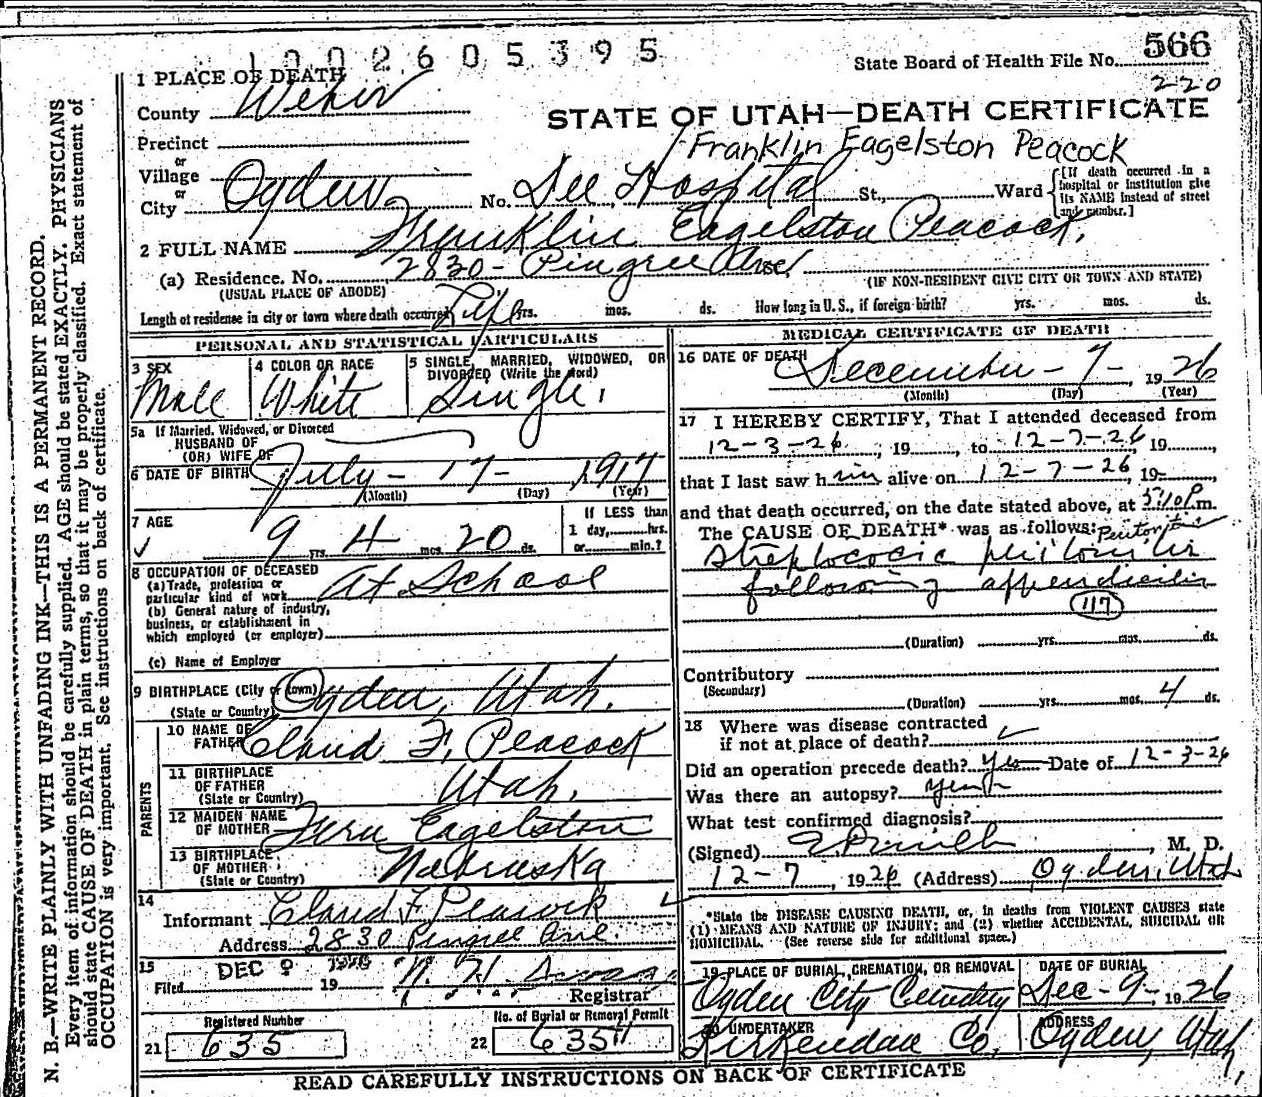 1002605395
State Board of Health File No. 566
220
1 PLACE OF DEATH
County Weber
STATE OF UTAH—DEATH CERTIFICATE
Franklin Eagelston Peacock
Precinct
or
Village
or
City Ogden No. Dee Hospital St., Ward
[If death occurred in a
hospital or institution give
its NAME instead of street
and number.]
2 FULL NAME Franklin Eagelston Peacock.
(a) Residence. No. 2830 - Pingree Ave.
(USUAL PLACE OF ABODE)
(IF NON-RESIDENT GIVE CITY OR TOWN AND STATE)
Length of residence in city or town where death occurred Life yrs. mos. ds. How long in U. S., if foreign birth? yrs. mos. ds.
PERSONAL AND STATISTICAL PARTICULARS
3 SEX
Male
4 COLOR OR RACE
White
5 SINGLE, MARRIED, WIDOWED, OR
DIVORCED (Write the word)
Single.
5a If Married, Widowed, or Divorced
HUSBAND OF
(OR) WIFE OF
6 DATE OF BIRTH July - 17 - , 1917
(Month) (Day) (Year)
7 AGE
9 yrs. 4 mos. 20 ds.
If LESS than
1 day, hrs.
or min.?
8 OCCUPATION OF DECEASED
(a) Trade, profession or
particular kind of work At School
(b) General nature of industry,
business, or establishment in
which employed (or employer)
(c) Name of Employer
9 BIRTHPLACE (City or town) Ogden, Utah.
(State or Country)
PARENTS
10 NAME OF
FATHER Claud F. Peacock
11 BIRTHPLACE
OF FATHER Utah.
(State or Country)
12 MAIDEN NAME
OF MOTHER Fern Eagelston
13 BIRTHPLACE
OF MOTHER Nebraska
(State or Country)
14
Informant Claud F. Peacock
Address 2830 Pingree Ave.
15
Filed DEC 9 19
Registrar
Registered Number
21 635
No. of Burial or Removal Permit
22 635
MEDICAL CERTIFICATE OF DEATH
16 DATE OF DEATH
December - 7 - , 1926
(Month) (Day) (Year)
17 I HEREBY CERTIFY, That I attended deceased from
12-3-26, 19 , to 12-7-26 19 ,
that I last saw him alive on 12-7-26, 19
and that death occurred, on the date stated above, at 5:10 P. m.
The CAUSE OF DEATH* was as follows: Peritonitis
Streptococcic peritonitis
following appendicitis
117
(Duration) yrs. mos. ds.
Contributory
(Secondary)
(Duration) yrs. mos. 4 ds.
18 Where was disease contracted
if not at place of death?
Did an operation precede death? yes Date of 12-3-26
Was there an autopsy?
What test confirmed diagnosis?
(Signed) M. D.
12-7, 1926 (Address) Ogden, Utah
*State the DISEASE CAUSING DEATH, or, in deaths from VIOLENT CAUSES state
(1) MEANS AND NATURE OF INJURY; and (2) whether ACCIDENTAL, SUICIDAL OR
HOMICIDAL. (See reverse side for additional space.)
19 PLACE OF BURIAL, CREMATION, OR REMOVAL
Ogden City Cemetery
DATE OF BURIAL
Dec - 9 -, 1926
20 UNDERTAKER
Kirkendall Co.
ADDRESS
Ogden, Utah.
READ CAREFULLY INSTRUCTIONS ON BACK OF CERTIFICATE
N. B.—WRITE PLAINLY WITH UNFADING INK—THIS IS A PERMANENT RECORD.
Every item of information should be carefully supplied. AGE should be stated EXACTLY. PHYSICIANS
should state CAUSE OF DEATH in plain terms, so that it may be properly classified. Exact statement of
OCCUPATION is very important. See instructions on back of certificate.